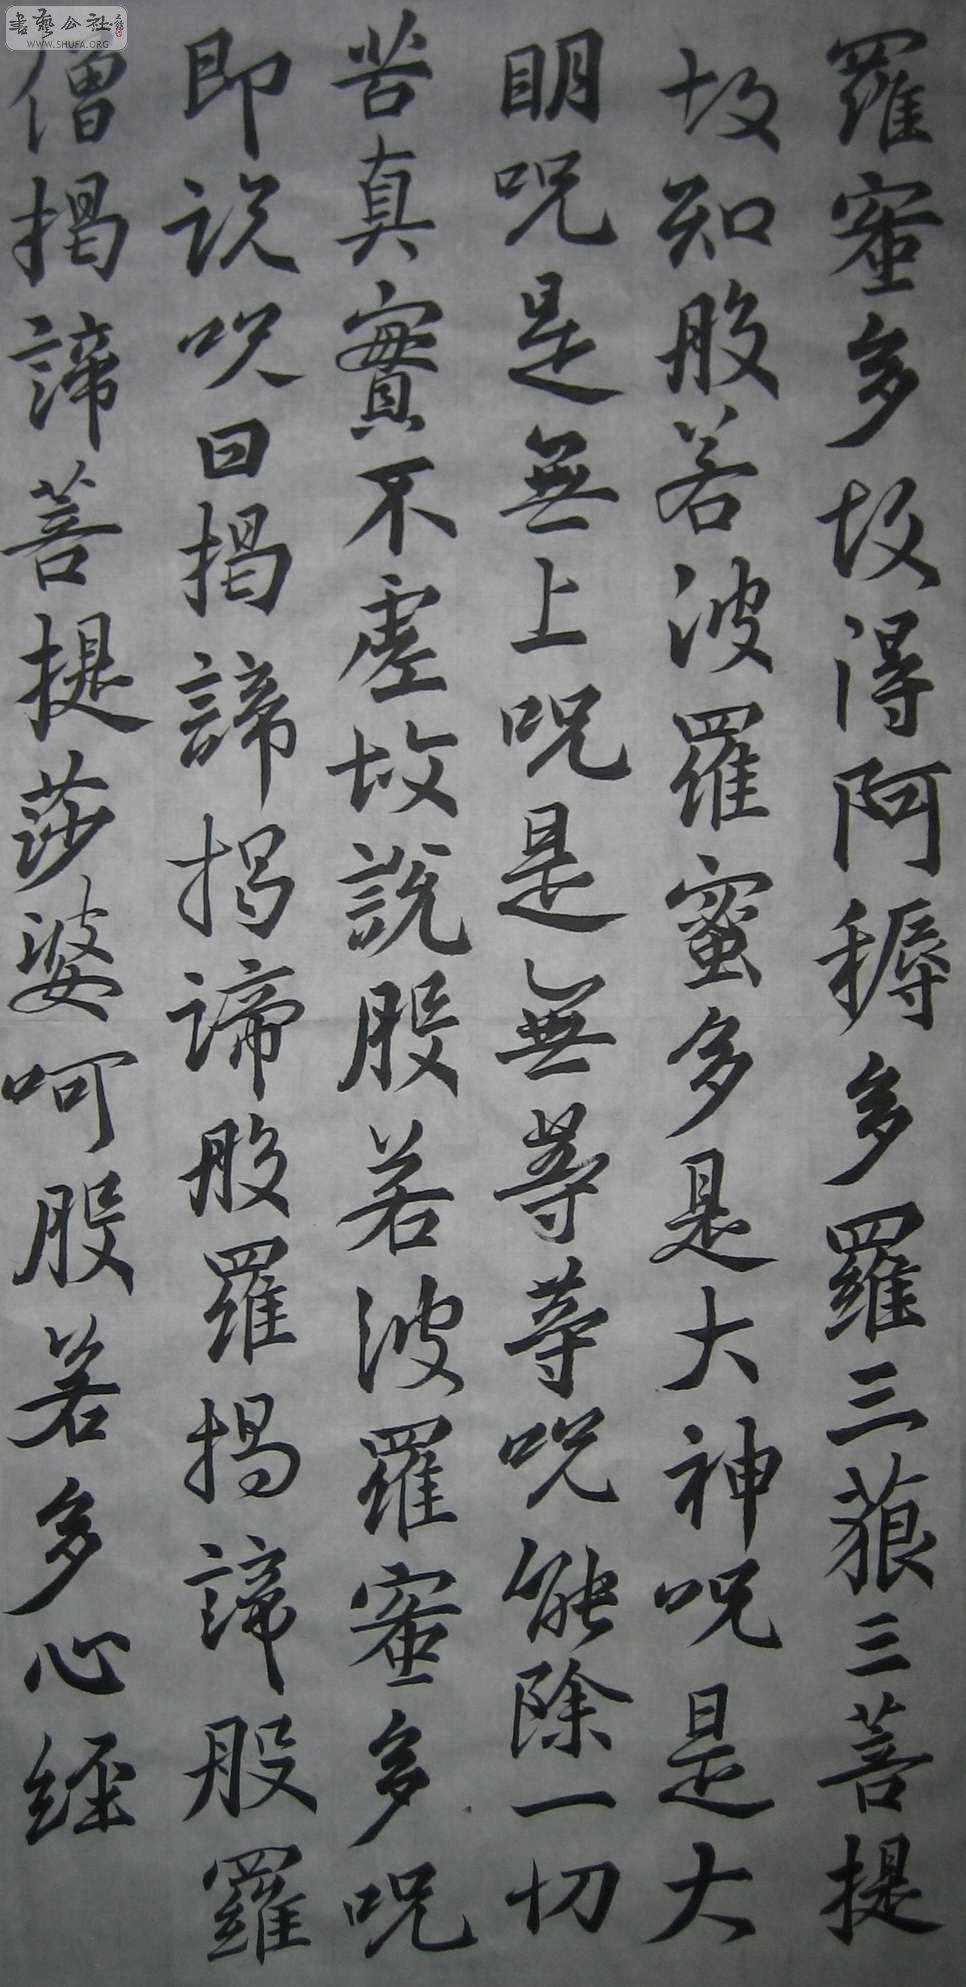 書藝公社
WWW.SHUFA.ORG
羅蜜多故得阿耨多羅三藐三菩提
故知般若波羅蜜多是大神咒是大
明咒是無上咒是無等等咒能除一切
苦真實不虛故說般若波羅蜜多咒
即説咒曰揭諦揭諦般羅揭諦般羅
僧揭諦菩提莎婆呵般若多心經